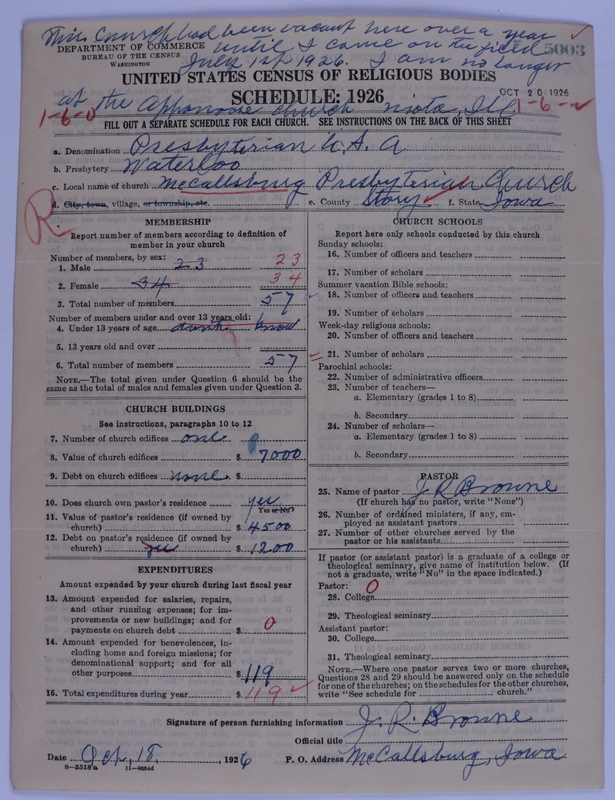 This Church had been vacant here over a year
DEPARTMENT OF COMMERCE until I came on the field 5003
BUREAU OF THE CENSUS
WASHINGTON July 1st 1926. I am no longer
UNITED STATES CENSUS OF RELIGIOUS BODIES
SCHEDULE: 1926 OCT 20 1926
at the Appanoose church Niota, Ill.
1-6-0 1-6-
FILL OUT A SEPARATE SCHEDULE FOR EACH CHURCH. SEE INSTRUCTIONS ON THE BACK OF THIS SHEET
a. Denomination Presbyterian U.S.A
b. Presbytery Waterloo
c. Local name of church McCallsburg Presbyterian Church
d. City, town, village, or township, etc. e. County Story f. State Iowa
R
MEMBERSHIP
Report number of members according to definition of
member in your church
Number of members, by sex:
1. Male 23 23
2. Female 34 34
3. Total number of members 57
Number of members under and over 13 years old:
4. Under 13 years of age dont know
5. 13 years old and over
6. Total number of members 57
NOTE.—The total given under Question 6 should be the
same as the total of males and females given under Question 3.
CHURCH BUILDINGS
See instructions, paragraphs 10 to 12
7. Number of church edifices one
8. Value of church edifices $ 7000
9. Debt on church edifices none $
10. Does church own pastor's residence yes
Yes or No
11. Value of pastor's residence (if owned by
church) $ 4500
12. Debt on pastor's residence (if owned by
church) yes $ 1200
EXPENDITURES
Amount expended by your church during last fiscal year
13. Amount expended for salaries, repairs,
and other running expenses; for im-
provements or new buildings; and for
payments on church debt $ 0
14. Amount expended for benevolences, in-
cluding home and foreign missions; for
denominational support; and for all
other purposes $ 119
15. Total expenditures during year $ 119
CHURCH SCHOOLS
Report here only schools conducted by this church
Sunday schools:
16. Number of officers and teachers
17. Number of scholars
Summer vacation Bible schools:
18. Number of officers and teachers
19. Number of scholars
Week-day religious schools:
20. Number of officers and teachers
21. Number of scholars
Parochial schools:
22. Number of administrative officers
23. Number of teachers—
a. Elementary (grades 1 to 8)
b. Secondary
24. Number of scholars—
a. Elementary (grades 1 to 8)
b. Secondary
PASTOR
25. Name of pastor J. R Browne
(If church has no pastor, write "None")
26. Number of ordained ministers, if any, em-
ployed as assistant pastors
27. Number of other churches served by the
pastor or his assistants
If pastor (or assistant pastor) is a graduate of a college or
theological seminary, give name of institution below. (If
not a graduate, write "No" in the space indicated.)
Pastor: 0
28. College
29. Theological seminary
Assistant pastor:
30. College
31. Theological seminary
NOTE.—Where one pastor serves two or more churches,
Questions 28 and 29 should be answered only on the schedule
for one of the churches; on the schedules for the other churches,
write "See schedule for church."
Signature of person furnishing information J. R. Browne
Official title
Date Oct, 18, 1926 P. O. Address McCallsburg, Iowa
8—5518a